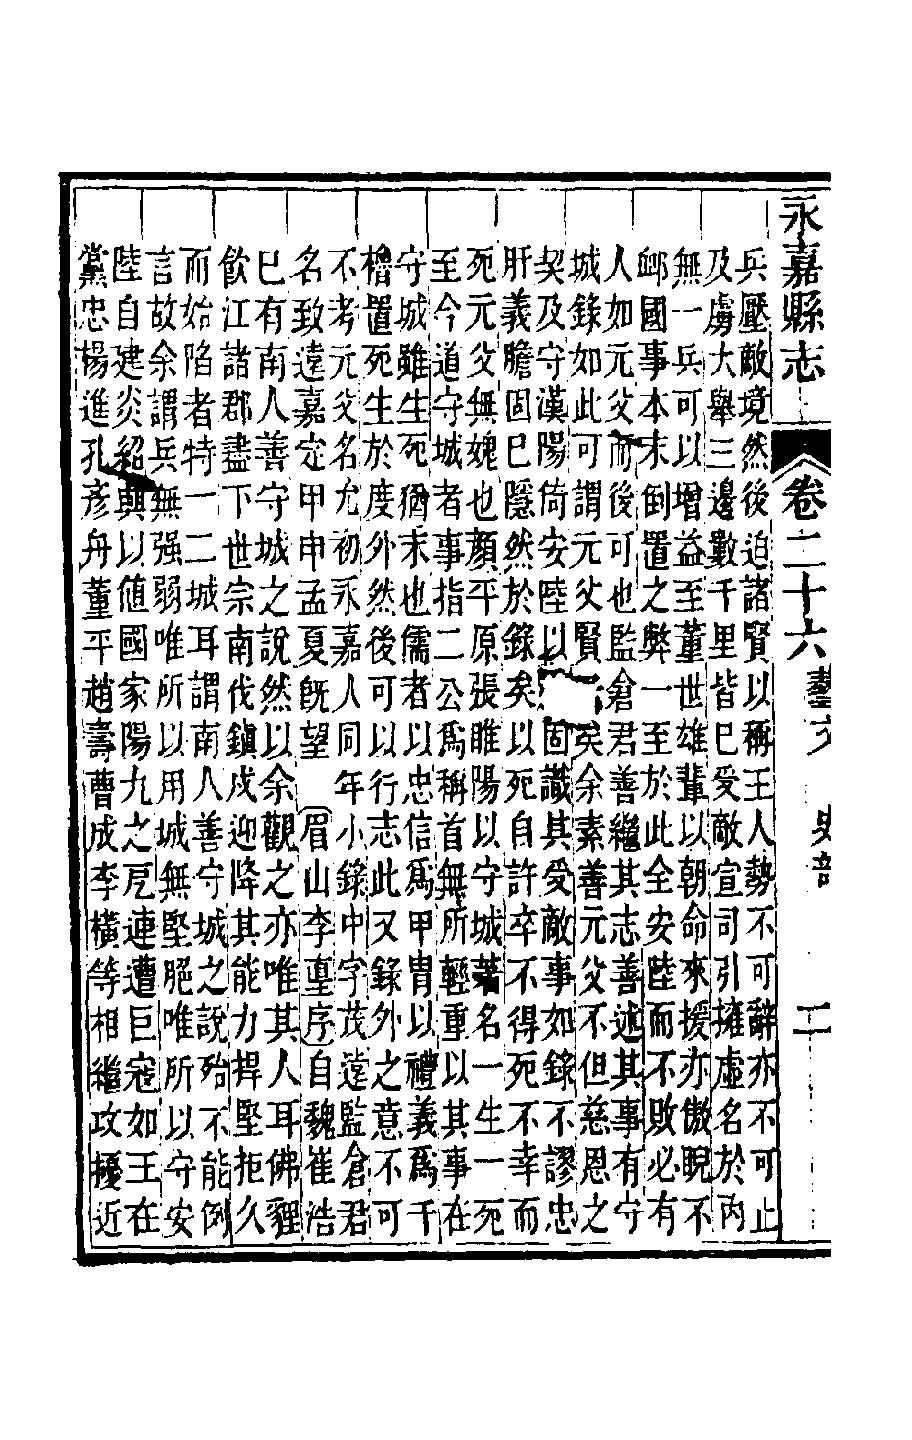 永嘉縣志 卷二十六 藝文 史部 二
兵壓敵境然後迫諸賢以稱王人勢不可辭亦不可止
及虜大舉三邊數千里皆巳受敵宣司引擁虛名於內
無一兵可以增益至董世雄輩以朝命來援亦傲睨不
䘏國事本末倒置之弊一至於此全安陸而不敗必有
人如元父而後可也監倉君善繼其志善述其事有守
城錄如此可謂元父賢矣余素善元父不但慈恩之
契及守漢陽倚安陸以固識其受敵事如錄不謬忠
肝義膽固巳隱然於錄矣以死自許卒不得死不幸而
死元父無媿也顏平原張睢陽以守城著名一生一死
至今道守城者事指二公爲稱首無所輕重以其事在
守城雖生死猶末也儒者以忠信爲甲冑以禮義爲干
櫓置死生於度外然後可以行志此又錄外之意不可
不考元父名允初永嘉人同年小錄中字茂遠監倉君
名致遠嘉定甲申孟夏旣望 眉山李𡌴序 自魏崔浩
巳有南人善守城之說然以余觀之亦唯其人耳佛貍
飲江諸郡盡下世宗南伐鎭戍迎降其能力捍堅拒久
而始陷者特一二城耳謂南人善守城之說殆不能例
言故余謂兵無强弱唯所以用城無堅脃唯所以守安
陸自建炎紹興以値國家陽九之厄連遭巨寇如王在
黨忠楊進孔彥舟董平趙壽曹成李橫等相繼攻擾近